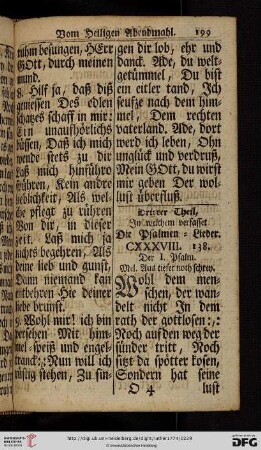 Vom Heiligen Abendmahl. 199
ruhm besungen, HErr
GOtt, durch meinen
mund.
8. Hilf ja, daß diß
gemessen Des edlen
schatzes schaff in mir:
Ein unaufhörlichs
büssen, Daß ich mich
wende stets zu dir
Laß mich hinführo
spühren, Kein andre
lieblichkeit, Als wel-
che pflegt zu rühren
Von dir, in dieser
zeit. Laß mich ja
nichts begehren, Als
deine lieb und gunst,
Dann niemand kan
entbehren Hie deiner
liebe brunst.
9. Wohl mir! ich bin
versehen Mit him-
mel-speiß und engel-
tranck:,: Nun will ich
rüstig stehen, Zu sin-
gen dir lob, ehr und
danck. Ade, du welt-
getümmel, Du bist
ein eitler tand, Ich
seufze nach dem him-
mel, Dem rechten
vaterland. Ade, dort
werd ich leben, Ohn
unglück und verdruß,
Mein GOtt, du wirst
mir geben Der wol-
lust überfluß.
Dritter Theil,
In welchem verfasset
Die Psalmen-Lieder.
CXXXVIII. 138.
Der 1. Psalm.
Mel. Aus tiefer noth schrey.
Wohl dem men-
schen, der wan-
delt nicht In dem
rath der gottlosen:,:
Noch auf den weg der
sünder tritt, Noch
sitzt da spötter kosen,
Sondern hat seine
O 4 lust
http://digi.ub.uni-heidelberg.de/diglit/luther1774/0229
© Universitätsbibliothek Heidelberg
UNIVERSITÄTS-
BIBLIOTHEK
HEIDELBERG
gefördert durch die
DFG